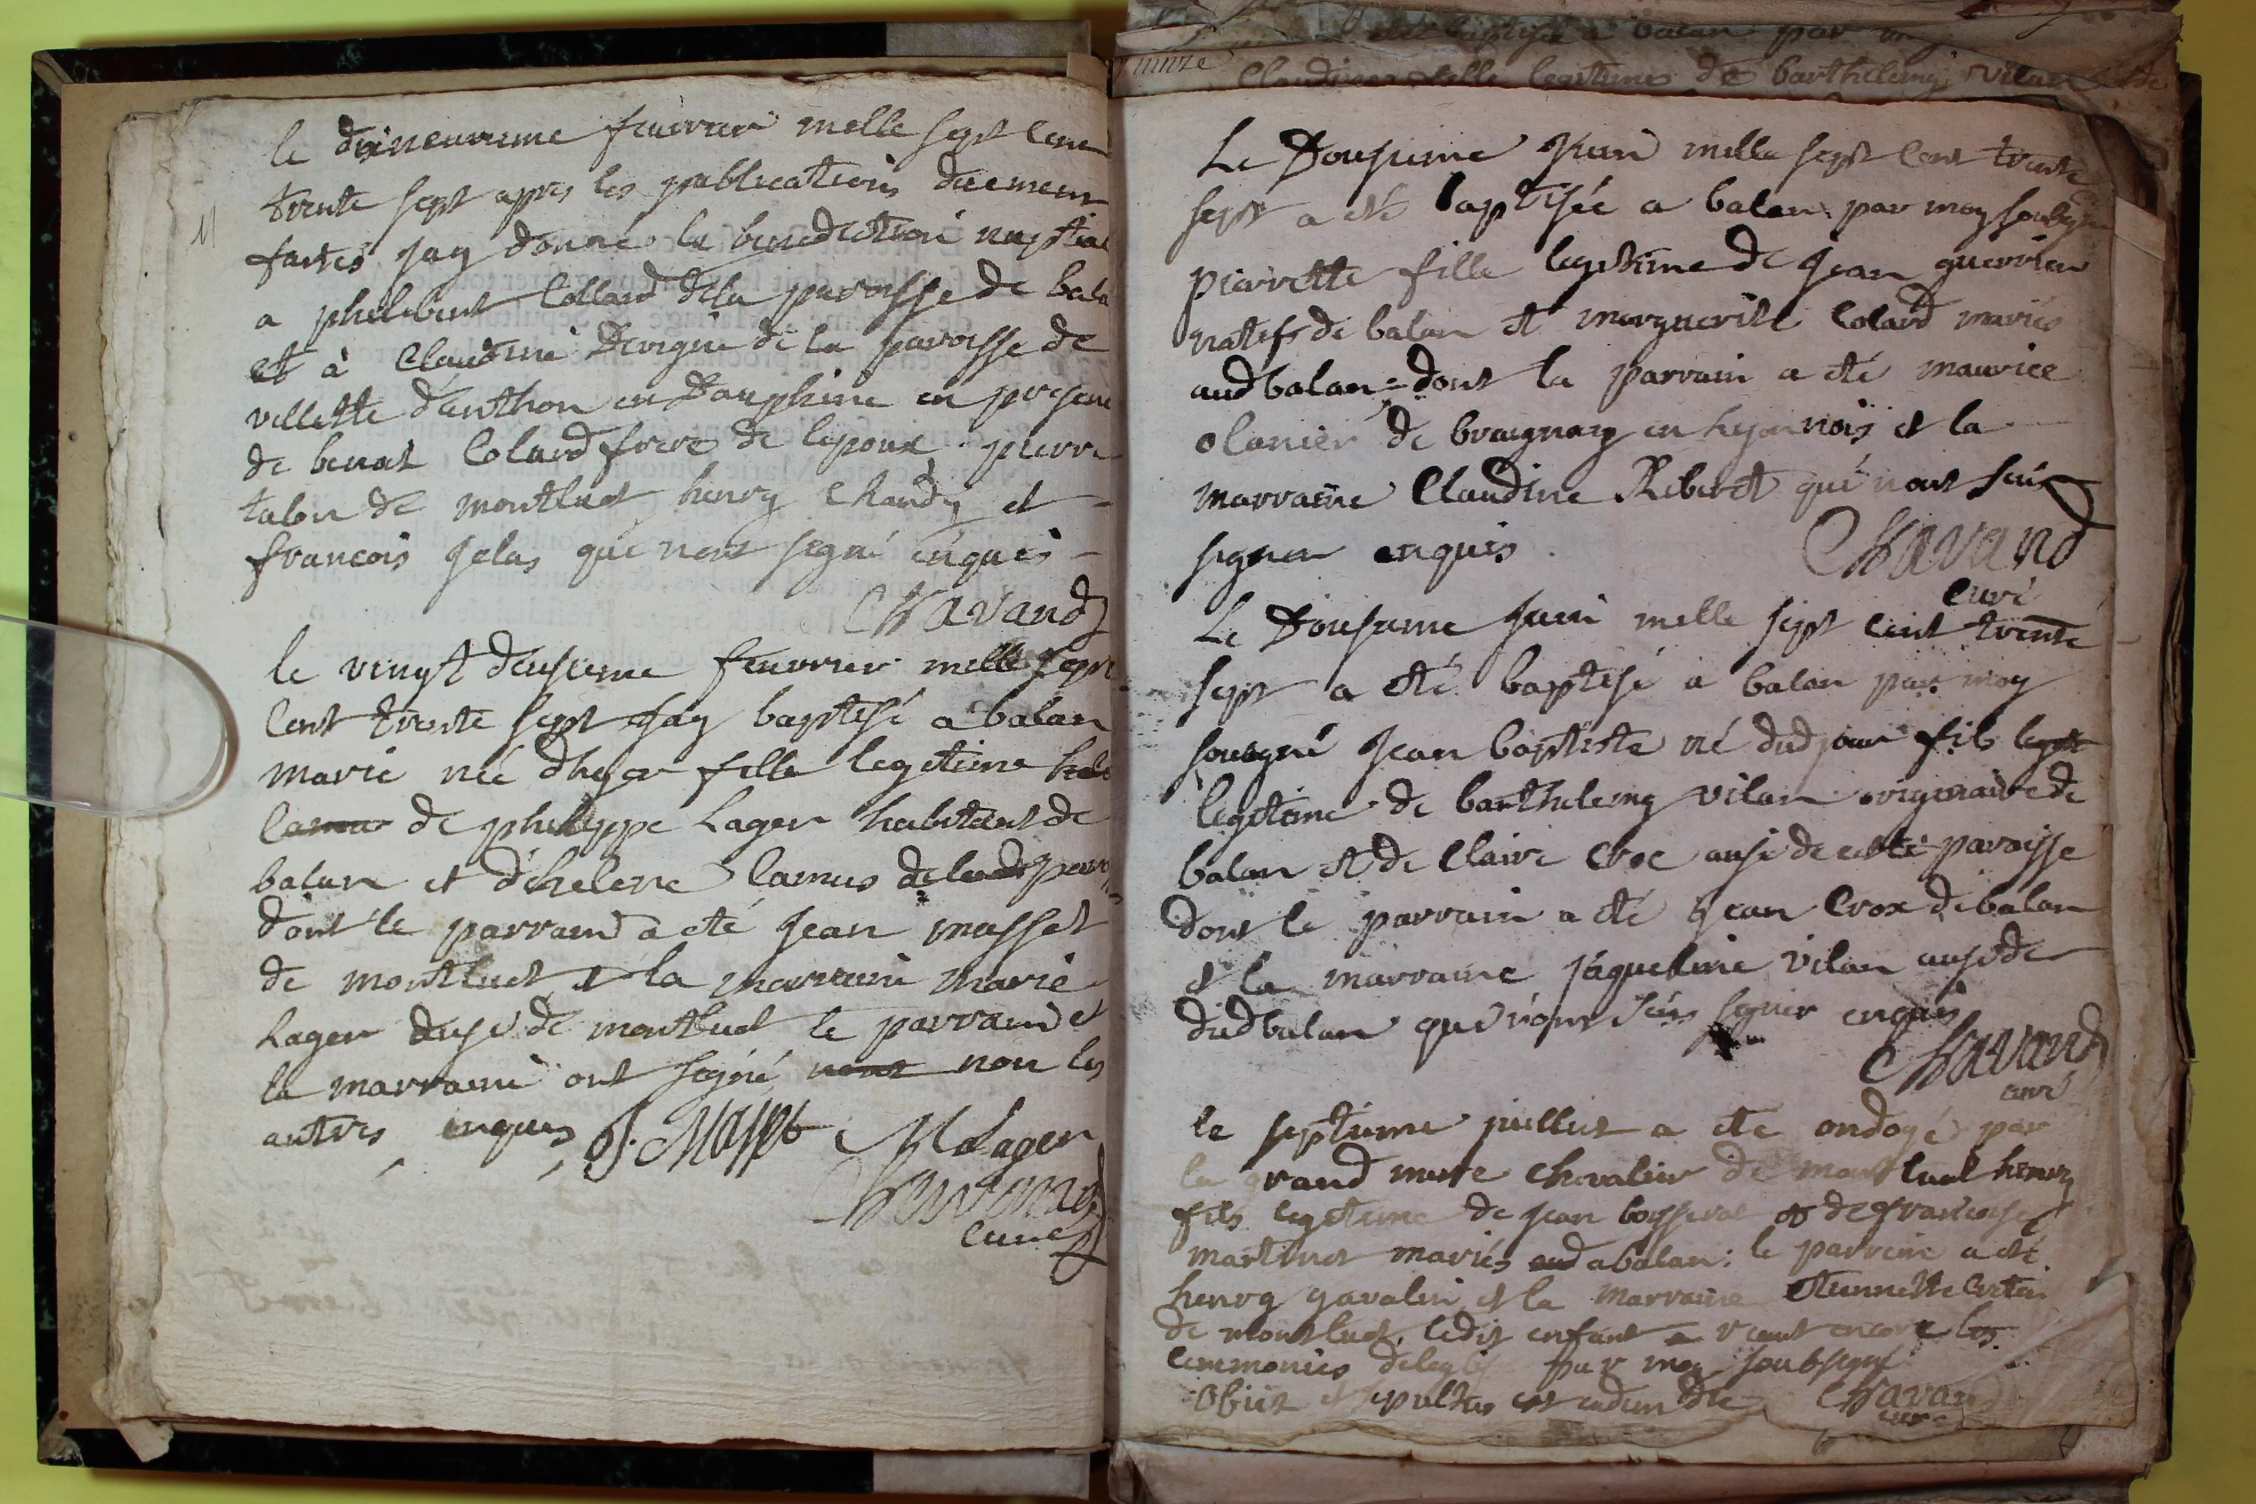 le dixneuvieme feuvrier mille sept cent
trente sept apres les publications duement
faites jay donné la benediction nuptial
M
a philibert Collard dela paroisse de bala
et à Claudine Devigne de la paroisse de
villette d'anthon en Dauphine en presenc
de benoit Colard frere de lepoux pierre
talon de montluel henry Chandy et
francois Jelas qui nont signé enquis
Chavand
le vingt deusieme feuvrier mille sept
Cent trente sept jay baptisé a balan
marie née dhyer fille legitime
de philippe Lager habitant de
balan et d'helene Camus
dont le parrain a eté jean masset
de montluel et la marraine marie
Lager ausi de montluel le parrain et
la marraine ont signé nont non les
autres enquis J. Masset M Lager
Chavand
Curé
baptisé a balan par
Claudine fille legitime de barthelemy vilan
Le Dousieme Juin mille sept Cent trente
sept a eté baptisée a balan par moy soubsigné
pierrette fille legitime de Jean guerrier
natifs de balan et marguerite Colard mariés
aud balan = dont la parrain a eté maurice
olanier de braignay en lyonnois et la
marraine Claudine Reberet qui nont sçu
signer enquis
Chavand
Curé
Le Dousieme Juin mille sept Cent trente
sept a eté baptisé a balan par moy
sousigné Jean baptiste né dud jour fils legit
legitime de barthelemy vilan originaire de
balan et de Claire Croc ausi de cette paroisse
dont le parrain a eté jean Crox de balan
et la marraine jaqueline vilan ausi de
dud balan qui nont sçu signer enquis
Chavand
curé
le septieme juillet a ete ondoyé par
la grand mere chevalier de montluel henry
fils legitime de jean boysserat et de francoise
martinet mariés aud a balan: le parrein a eté
henry gavalin et la marraine Etiennette
de montluel, ledit enfant a encore les
ceremonies deleglise par moy soubsigné
Obiit sepultus est eadem die Chavand
curé